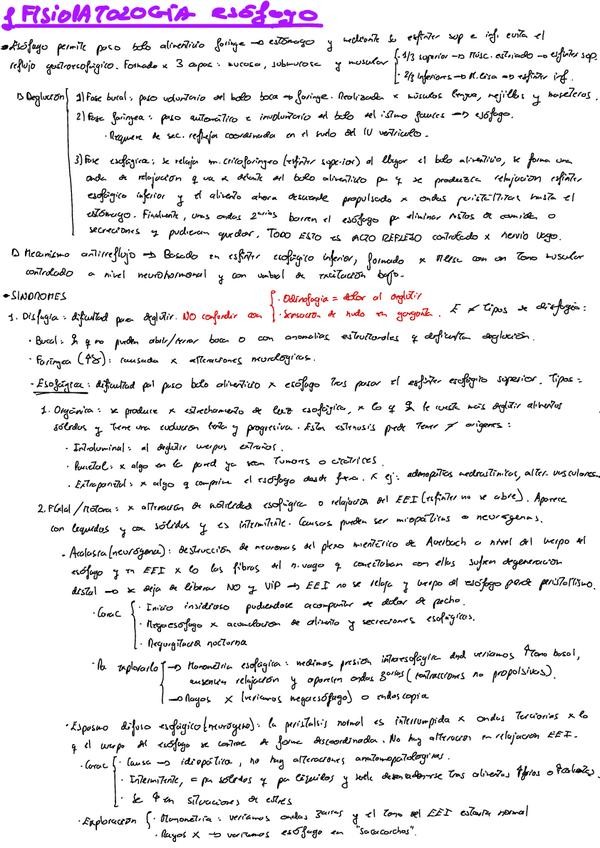 FISIOPATOLOGÍA esófago
• Esófago permite paso bolo alimenticio faringe → estómago y mediante su esfínter sup e inf. evita el
reflujo gastroesofágico. Formado x 3 capas: mucosa, submucosa y muscular { · 1/3 superior → Músc. estriado → esfínter sup.
· 2/3 inferiores → M. lisa → esfínter inf.
Deglución { 1) Fase bucal: paso voluntario del bolo boca → faringe. Realizada x músculos lengua, mejillas y maseteros.
2) Fase faríngea: paso automático e involuntario del bolo del istmo fauces → esófago.
· Requiere de sec. refleja coordinada en el suelo del IV ventrículo.
3) Fase esofágica: se relaja m. cricofaríngeo (esfínter superior) al llegar el bolo alimenticio, se forma una
onda de relajación q va x delante del bolo alimenticio pa q se produzca relajación esfínter
esofágico inferior y el alimento ahora desciende propulsado x ondas peristálticas hasta el
estómago. Finalmente, unas ondas 2arias barren el esófago pa eliminar restos de comida o
secreciones q pudieran quedar. TODO ESTO es ACTO REFLEJO controlado x nervio vago.
Mecanismo antirreflujo → Basado en esfínter esofágico inferior, formado x músc con un tono muscular
controlado a nivel neurohormonal y con umbral de excitación bajo.
• SÍNDROMES
1. Disfagia: dificultad para deglutir. NO confundir con { · Odinofagia = dolor al deglutir
· Sensación de nudo en garganta. E ≠ tipos de disfagia:
· Bucal: q no pueden abrir/cerrar boca o con anomalías estructurales q dificultan deglución.
· Faríngea: causada x alteraciones neurológicas.
- Esofágica: dificultad pal paso bolo alimenticio x esófago tras pasar el esfínter esofágico superior. Tipos:
1. Orgánica: se produce x estrechamiento de luz esofágica, x lo q le cuesta más deglutir alimentos
sólidos y tiene una evolución lenta y progresiva. Esta estenosis puede tener ≠ orígenes:
· Intraluminal: al deglutir cuerpos extraños.
· Parietal: x algo en la pared ya sean tumores o cicatrices.
· Extraparietal: x algo q comprime el esófago desde fuera. X ej: adenopatías mediastínicas, alter. vasculares...
2. Fcional/Motora: x alteración de motilidad esofágica o relajación del EEI (esfínter no se abre). Aparece
con líquidos y con sólidos y es intermitente. Causas pueden ser miopáticas o neurógenas.
- Acalasia (neurógena): destrucción de neuronas del plexo mientérico de Auerbach a nivel del cuerpo del
esófago y en EEI x lo q las fibras del n. vago q conectaban con ellas sufren degeneración
distal → se deja de liberar NO y VIP → EEI no se relaja y cuerpo del esófago pierde peristaltismo.
· Carac { · Inicio insidioso pudiéndose acompañar de dolor de pecho.
· Megaesófago x acumulación de alimento y secreciones esofágicas.
· Regurgitación nocturna
· Pa explorarlo { → Manometría esofágica: medimos presión intraesofágica dnd veríamos ↑ tono basal,
ausencia relajación y aparecen ondas 3arias (contracciones no propulsivas).
→ Rayos X (veríamos megaesófago) o endoscopia
· Espasmo difuso esofágico (neurógeno): la peristalsis normal es interrumpida x ondas terciarias x lo
q el cuerpo del esófago se contrae de forma descoordinada. No hay alteración en relajación EEI.
· Carac { · Causa → idiopática, no hay alteraciones anatomopatológicas.
· Intermitente, = pa sólidos y pa líquidos y suele desencadenarse tras alimentos ↑ fríos o ↑ calientes.
· Se ↑ en situaciones de estrés
· Exploración { · Manometría: veríamos ondas 3arias y el tono del EEI estaría normal
· Rayos X → veríamos esófago en "sacacorchos".